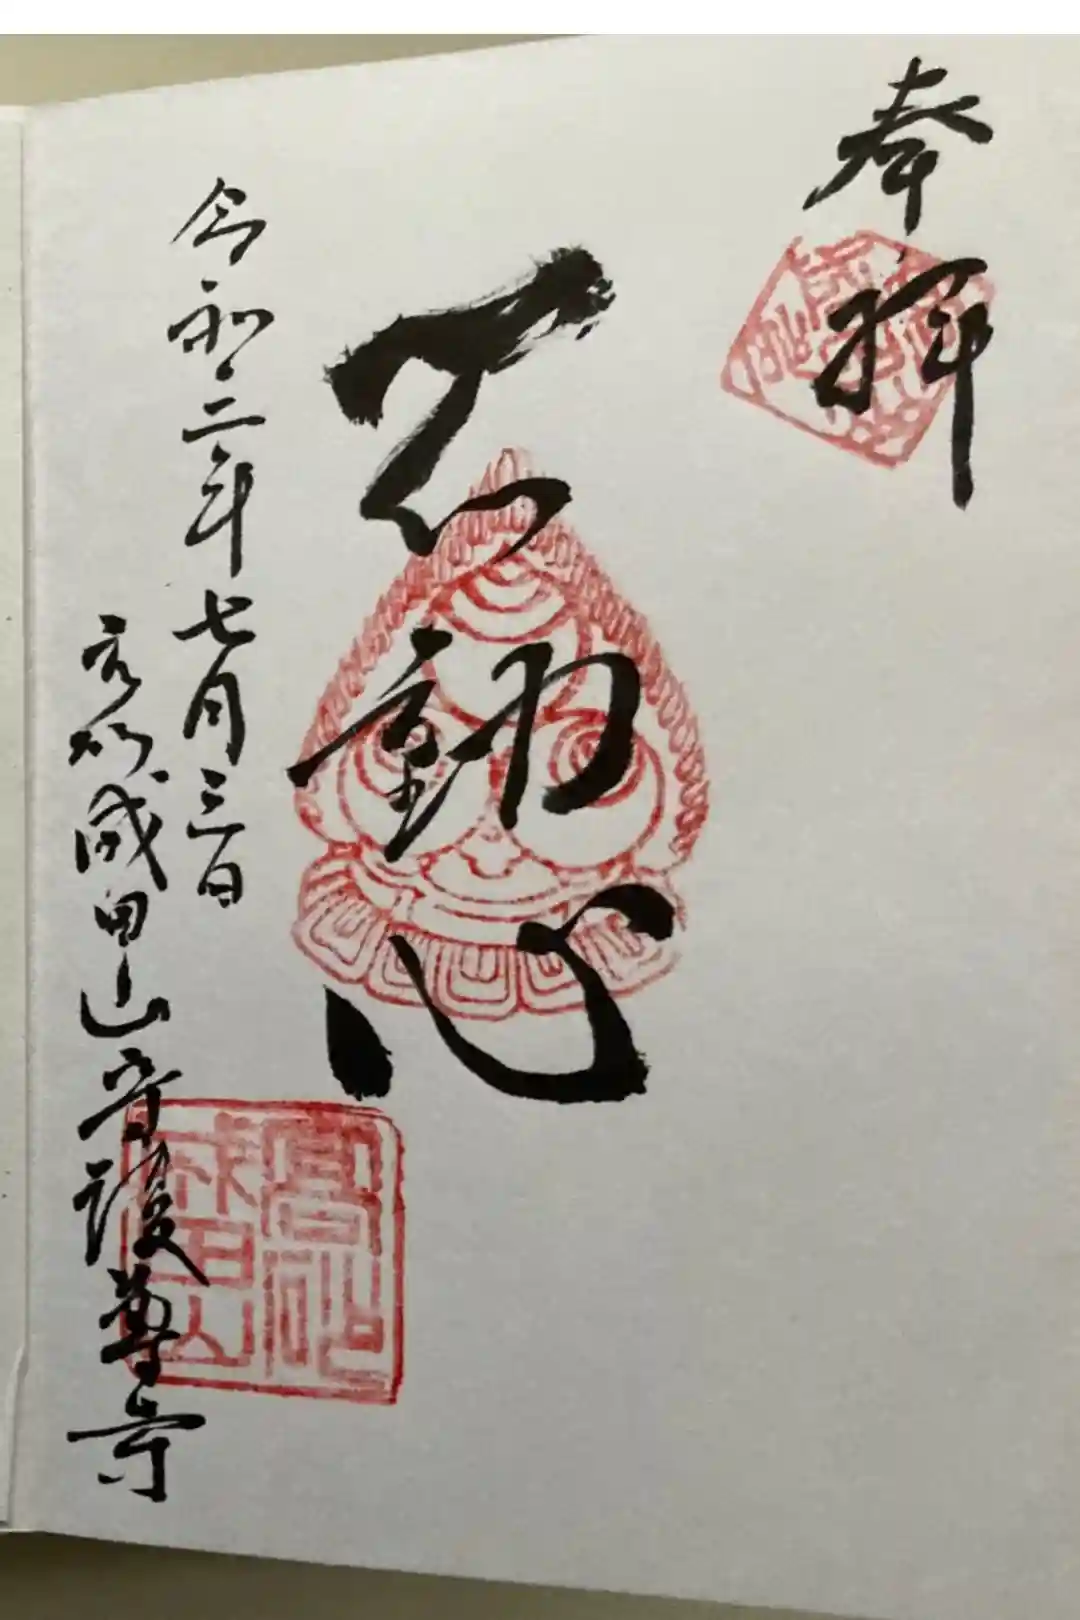 奉拝
不動心
令和二年七月三日
高砂成田山守護尊寺